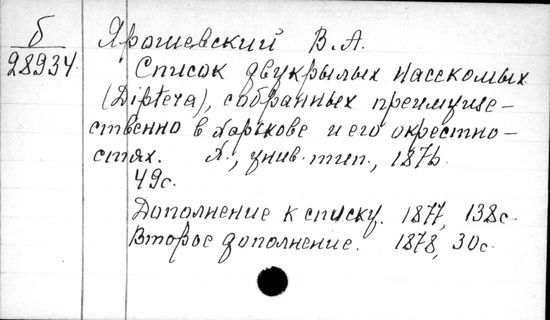 б
28934
Ярошевский В.А.
Список двукрылых насекомых
(Diptera), собранных преимуще-
ственно в Харькове и его окрестно-
стях. Х., унив. тип., 1876.
49с.
Дополнение к списку. 1877, 138с.
Второе дополнение. 1878, 30с.